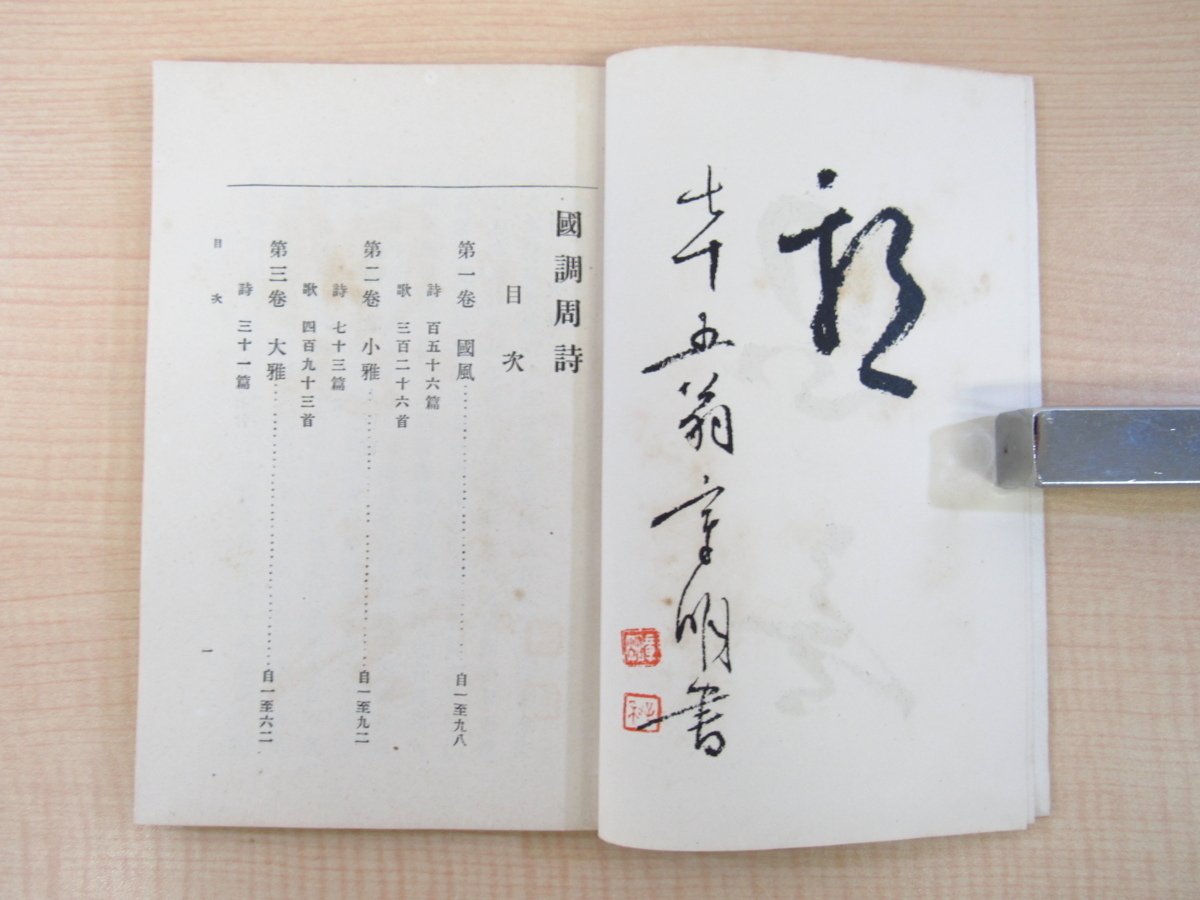 七十五翁章明書
國調周詩
目次
第一卷　國風……自一至九八
詩　百五十六篇
歌　三百二十六首
第二卷　小雅……自一至九二
詩　七十三篇
歌　四百九十三首
第三卷　大雅……自一至六二
詩　三十一篇
目次
一